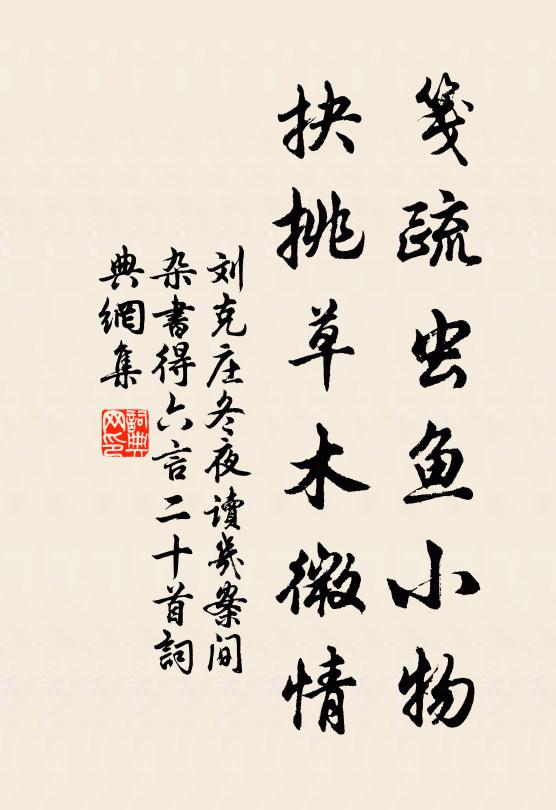 笺疏虫鱼小物
抉挑草木微情
刘克庄冬夜读几案间
杂书得六言二十首詞
典網集
詞典网印